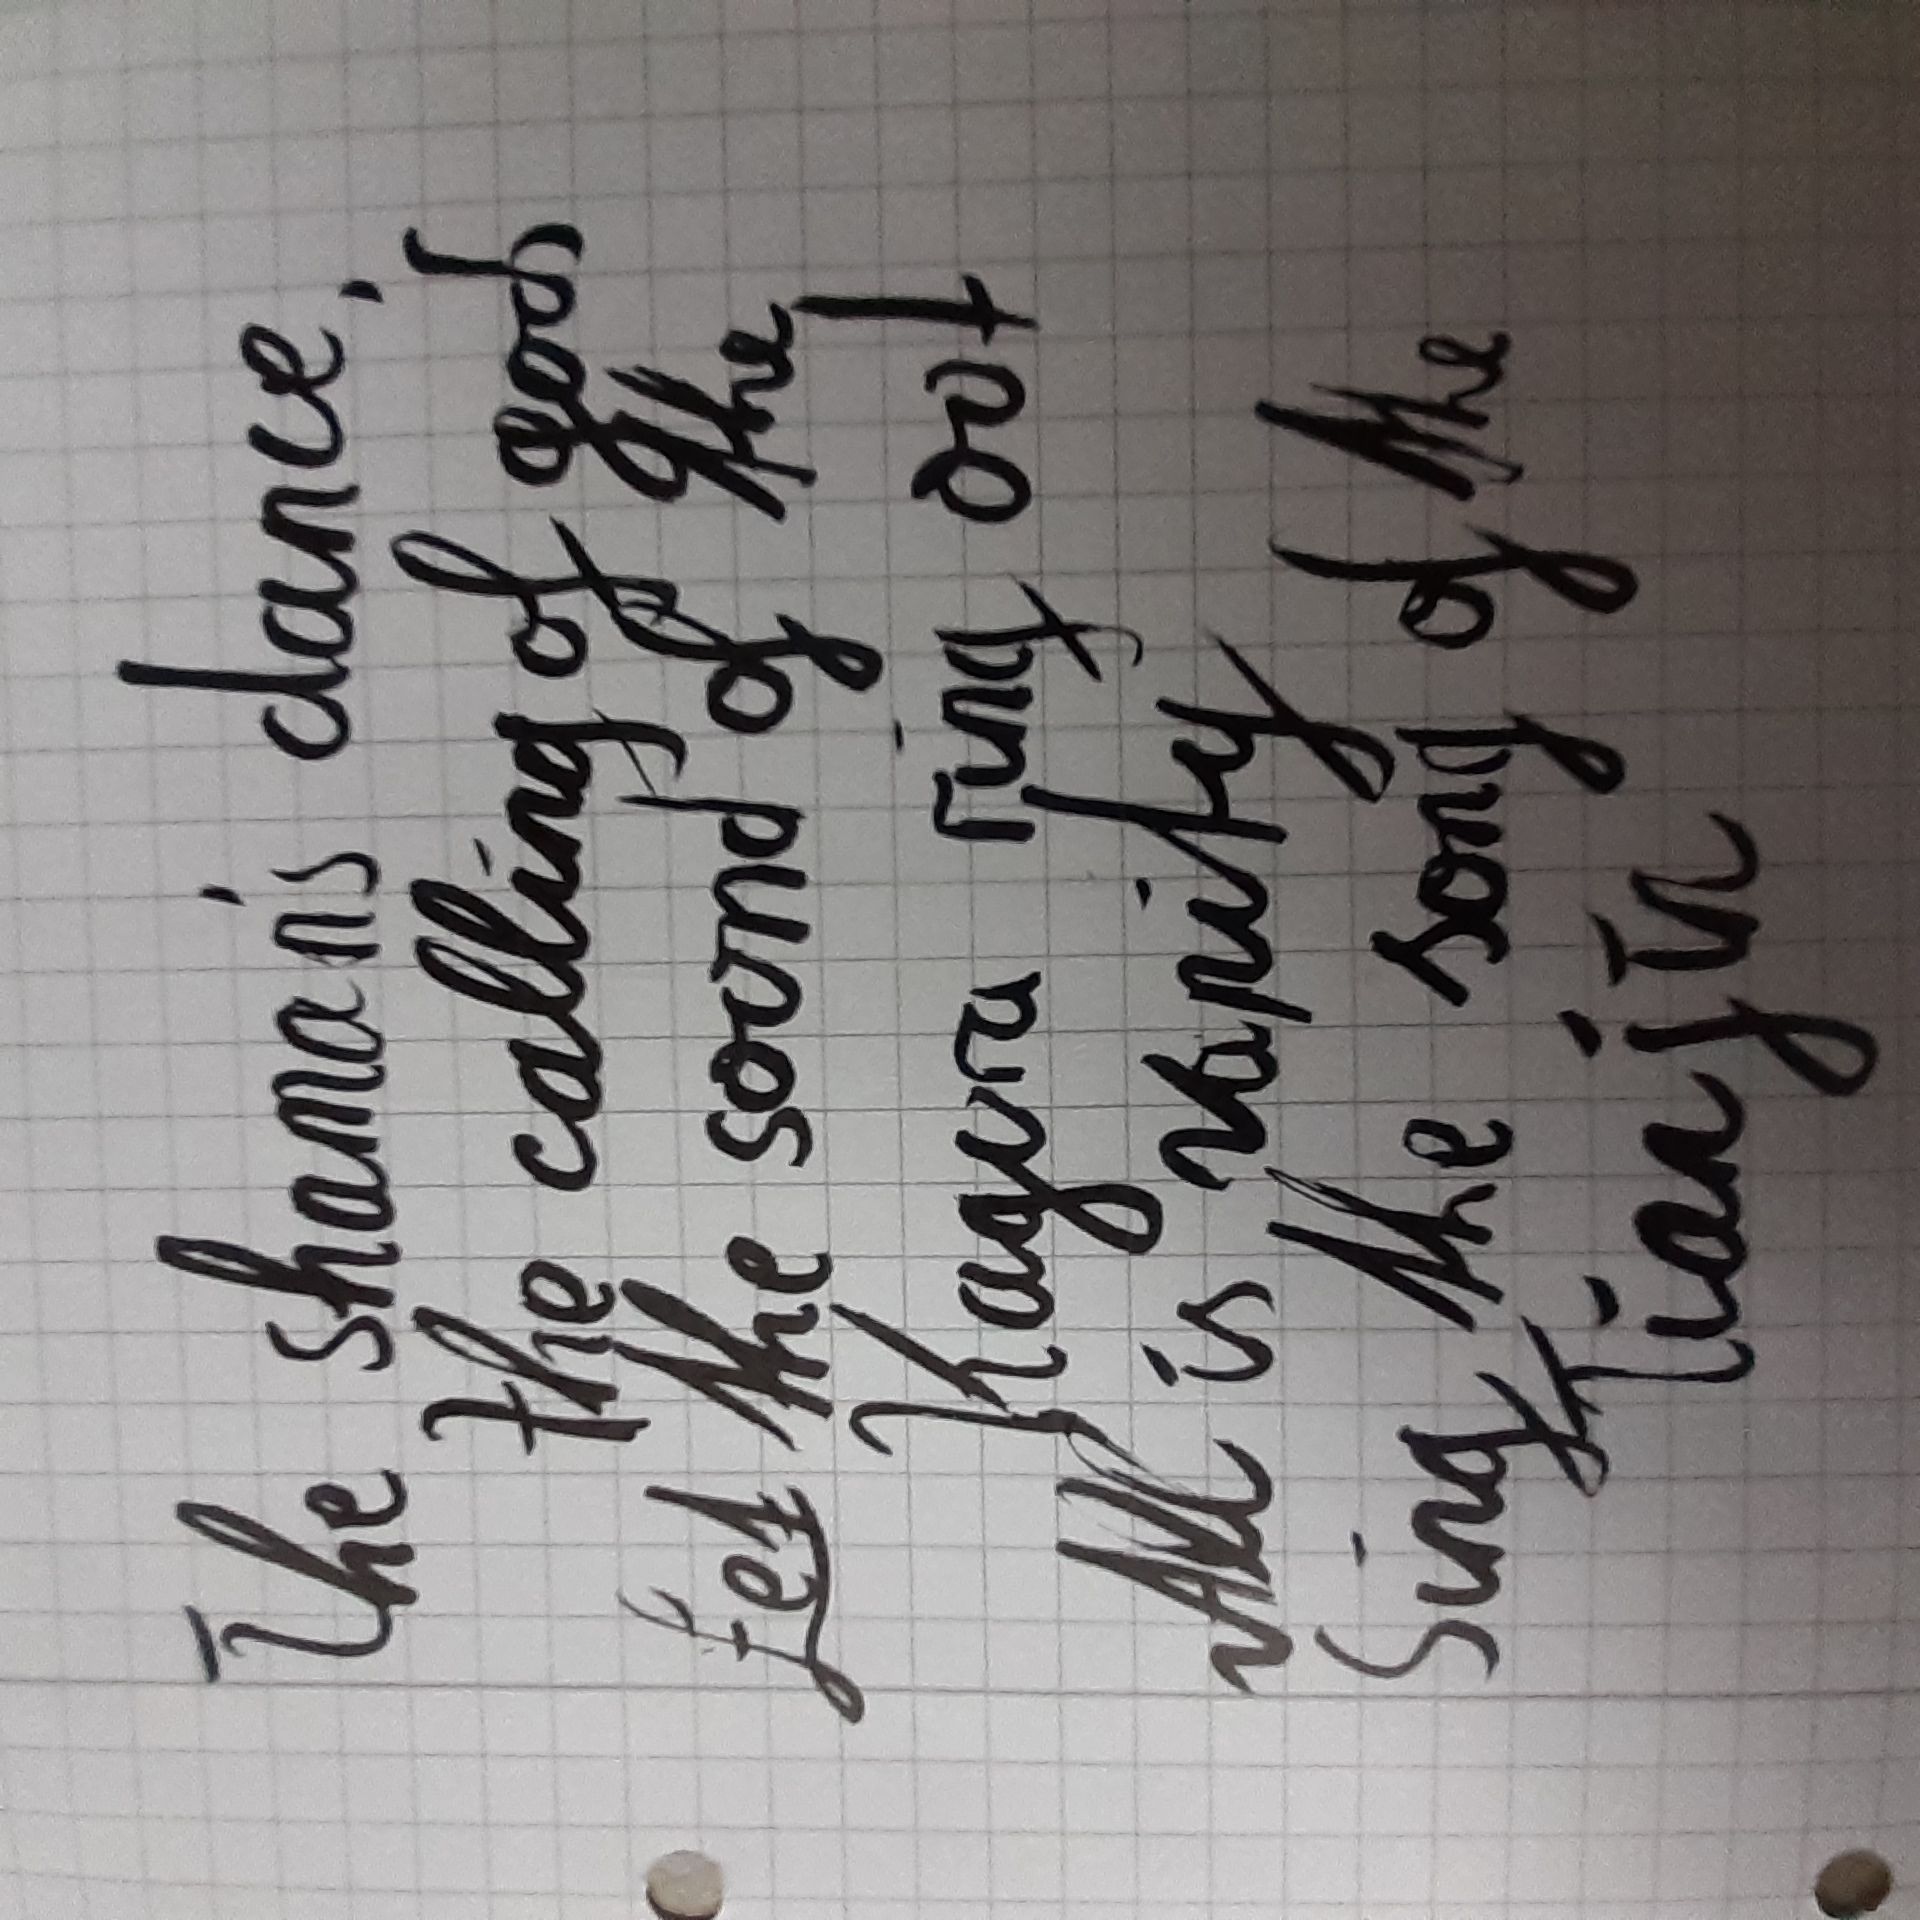 The shaman's dance,
the calling of god
Let the sound of the
kagura ring out
All is vanity
Sing the song of the
Tianjin